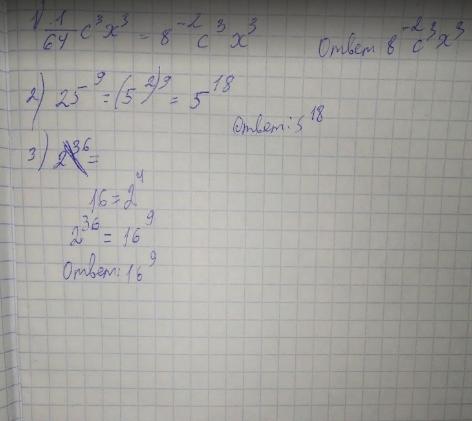 1) 1/64 c³x³ = 8⁻² c³ x³ Ответ 8⁻² c³ x³
2) 25⁹ = (5²)⁹ = 5¹⁸
Ответ: 5¹⁸
3) 2³⁶ =
16 = 2⁴
2³⁶ = 16⁹
Ответ: 16⁹